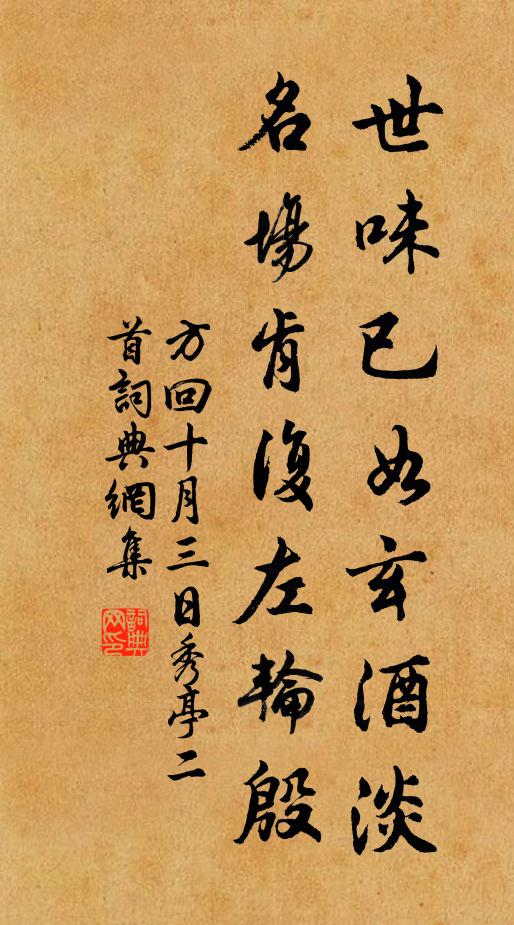 世味已如玄酒淡
名場肯復左輪殷
方回十月三日秀亭二
首詞典網集
詞典
网印